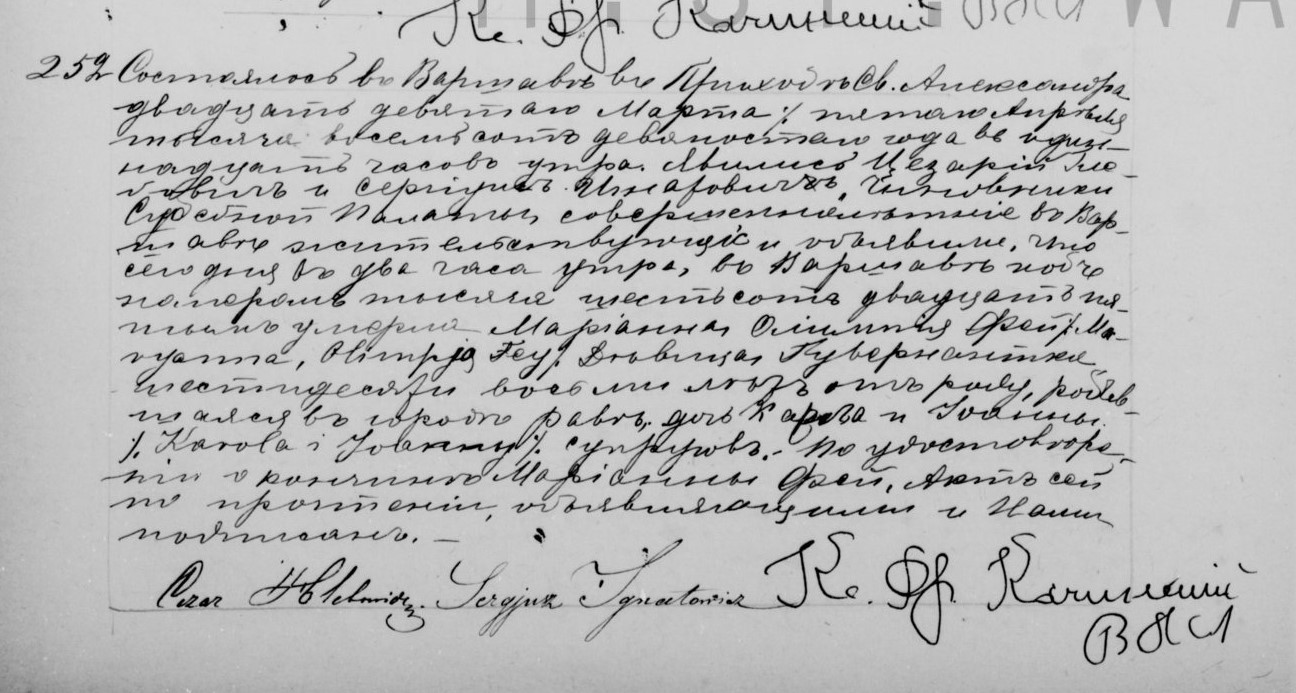 Кс. Фр. Качинскій
252 Состоялось въ Варшавѣ въ Приходѣ Св. Александра
двадцать девятаго Марта /: пятаго Апрѣля
тысяча восемьсотъ девяностаго года въ один-
надцать часовъ утра. Явились Цезарій
и Сергіушъ Игнатовичъ, Чиновники
Судебной Палаты, совершеннолѣтніе въ Вар-
шавѣ жительствующіе и объявили, что
сего дня въ два часа утра, въ Варшавѣ подъ
номеромъ тысяча шестьсотъ двадцать пя-
тымъ умерла Маріанна Олимпія Фей /: Ma-
ryanna, Olimpja Fey /: Дѣвица, Гувернантка
шестидесяти восьми лѣтъ отъ роду, родив-
шаяся въ городѣ дочь Кароля и Іоанны
/: Karola i Joanny /: супруговъ. - По удостовѣре-
ніи о кончинѣ Маріанны Фей, Актъ сей
по прочтеніи, объявляющими и Нами
подписанъ. -
Cezar Sergjusz Ignatowicz Кс. Фр. Качинскій